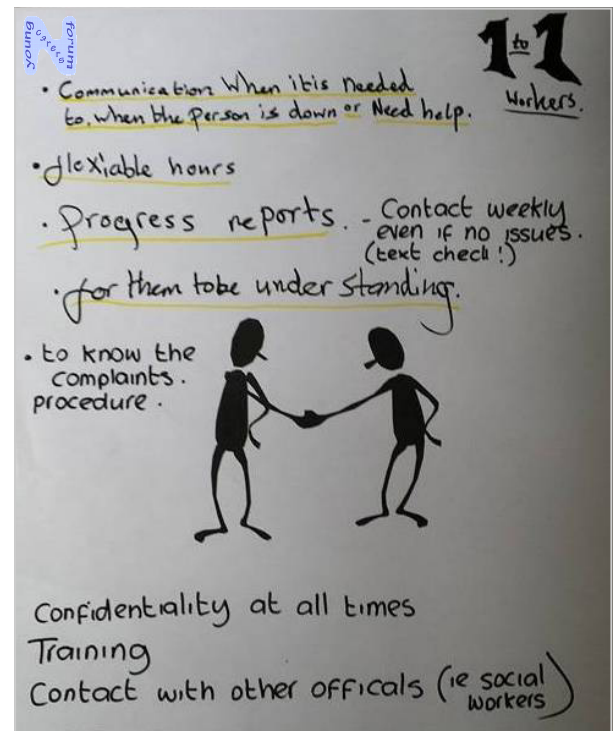 young
forum
1 to 1
Workers.
• Communication When it is needed
to, when the person is down or Need help.
• flexiable hours
• Progress reports. - Contact weekly
even if no issues.
(text check!)
• for them tobe under standing.
• to know the
complaints.
procedure.
Confidentiality at all times
Training
Contact with other officals (ie social
workers)